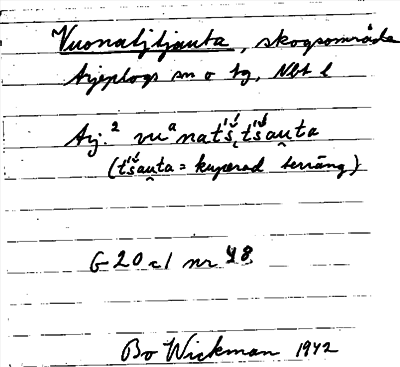 Vuonatjtjauta, skogsområde
Arjeplogs sn o tg, Nbt l
Arj.² vuᵃnatš́tš́au̯ta
(tš́au̯ta = kuperad terräng)
G 20 c 1 nr 48
Bo Wickman 1942